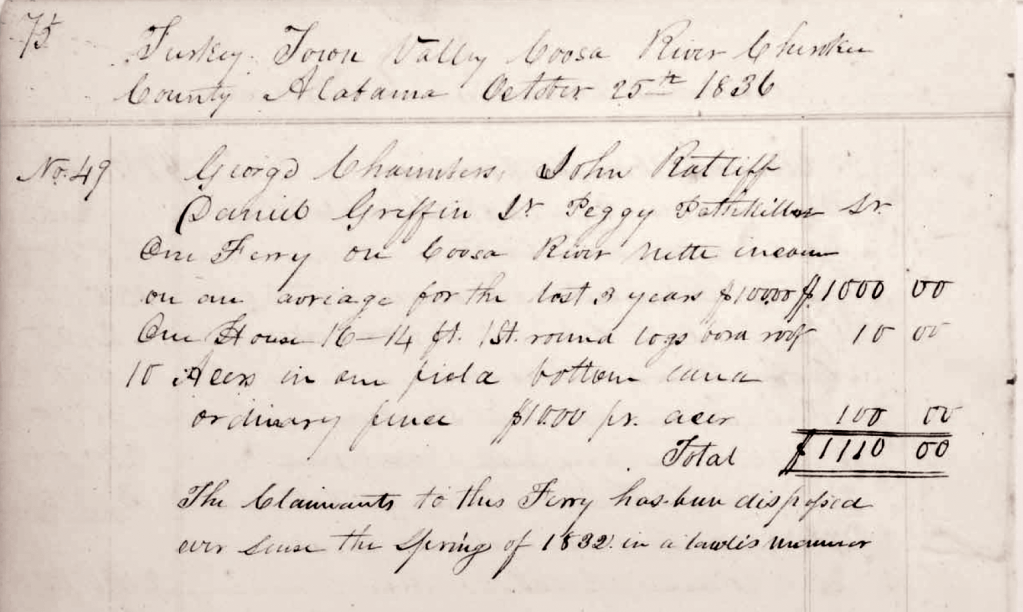 75
Turkey Town Valley Coosa River Cherokee
County Alabama October 25th 1836
No. 49 Georg'd Chaunters, John Ratliff
Daniel Griffin Sr Peggy Pathkiller Sr.
One Ferry on Coosa River nette incom
on an avriage for the last 3 years $1000.00 $1000 00
One House 16-14 ft. 1St. round logs bord roof 10 00
10 Acers in one field bottom land
ordinary fence $10.00 pr. acer 100 00
Total $1110 00
The Claimants to this Ferry has been disposesed
ever sense the Spring of 1832 in a lawlis mannor